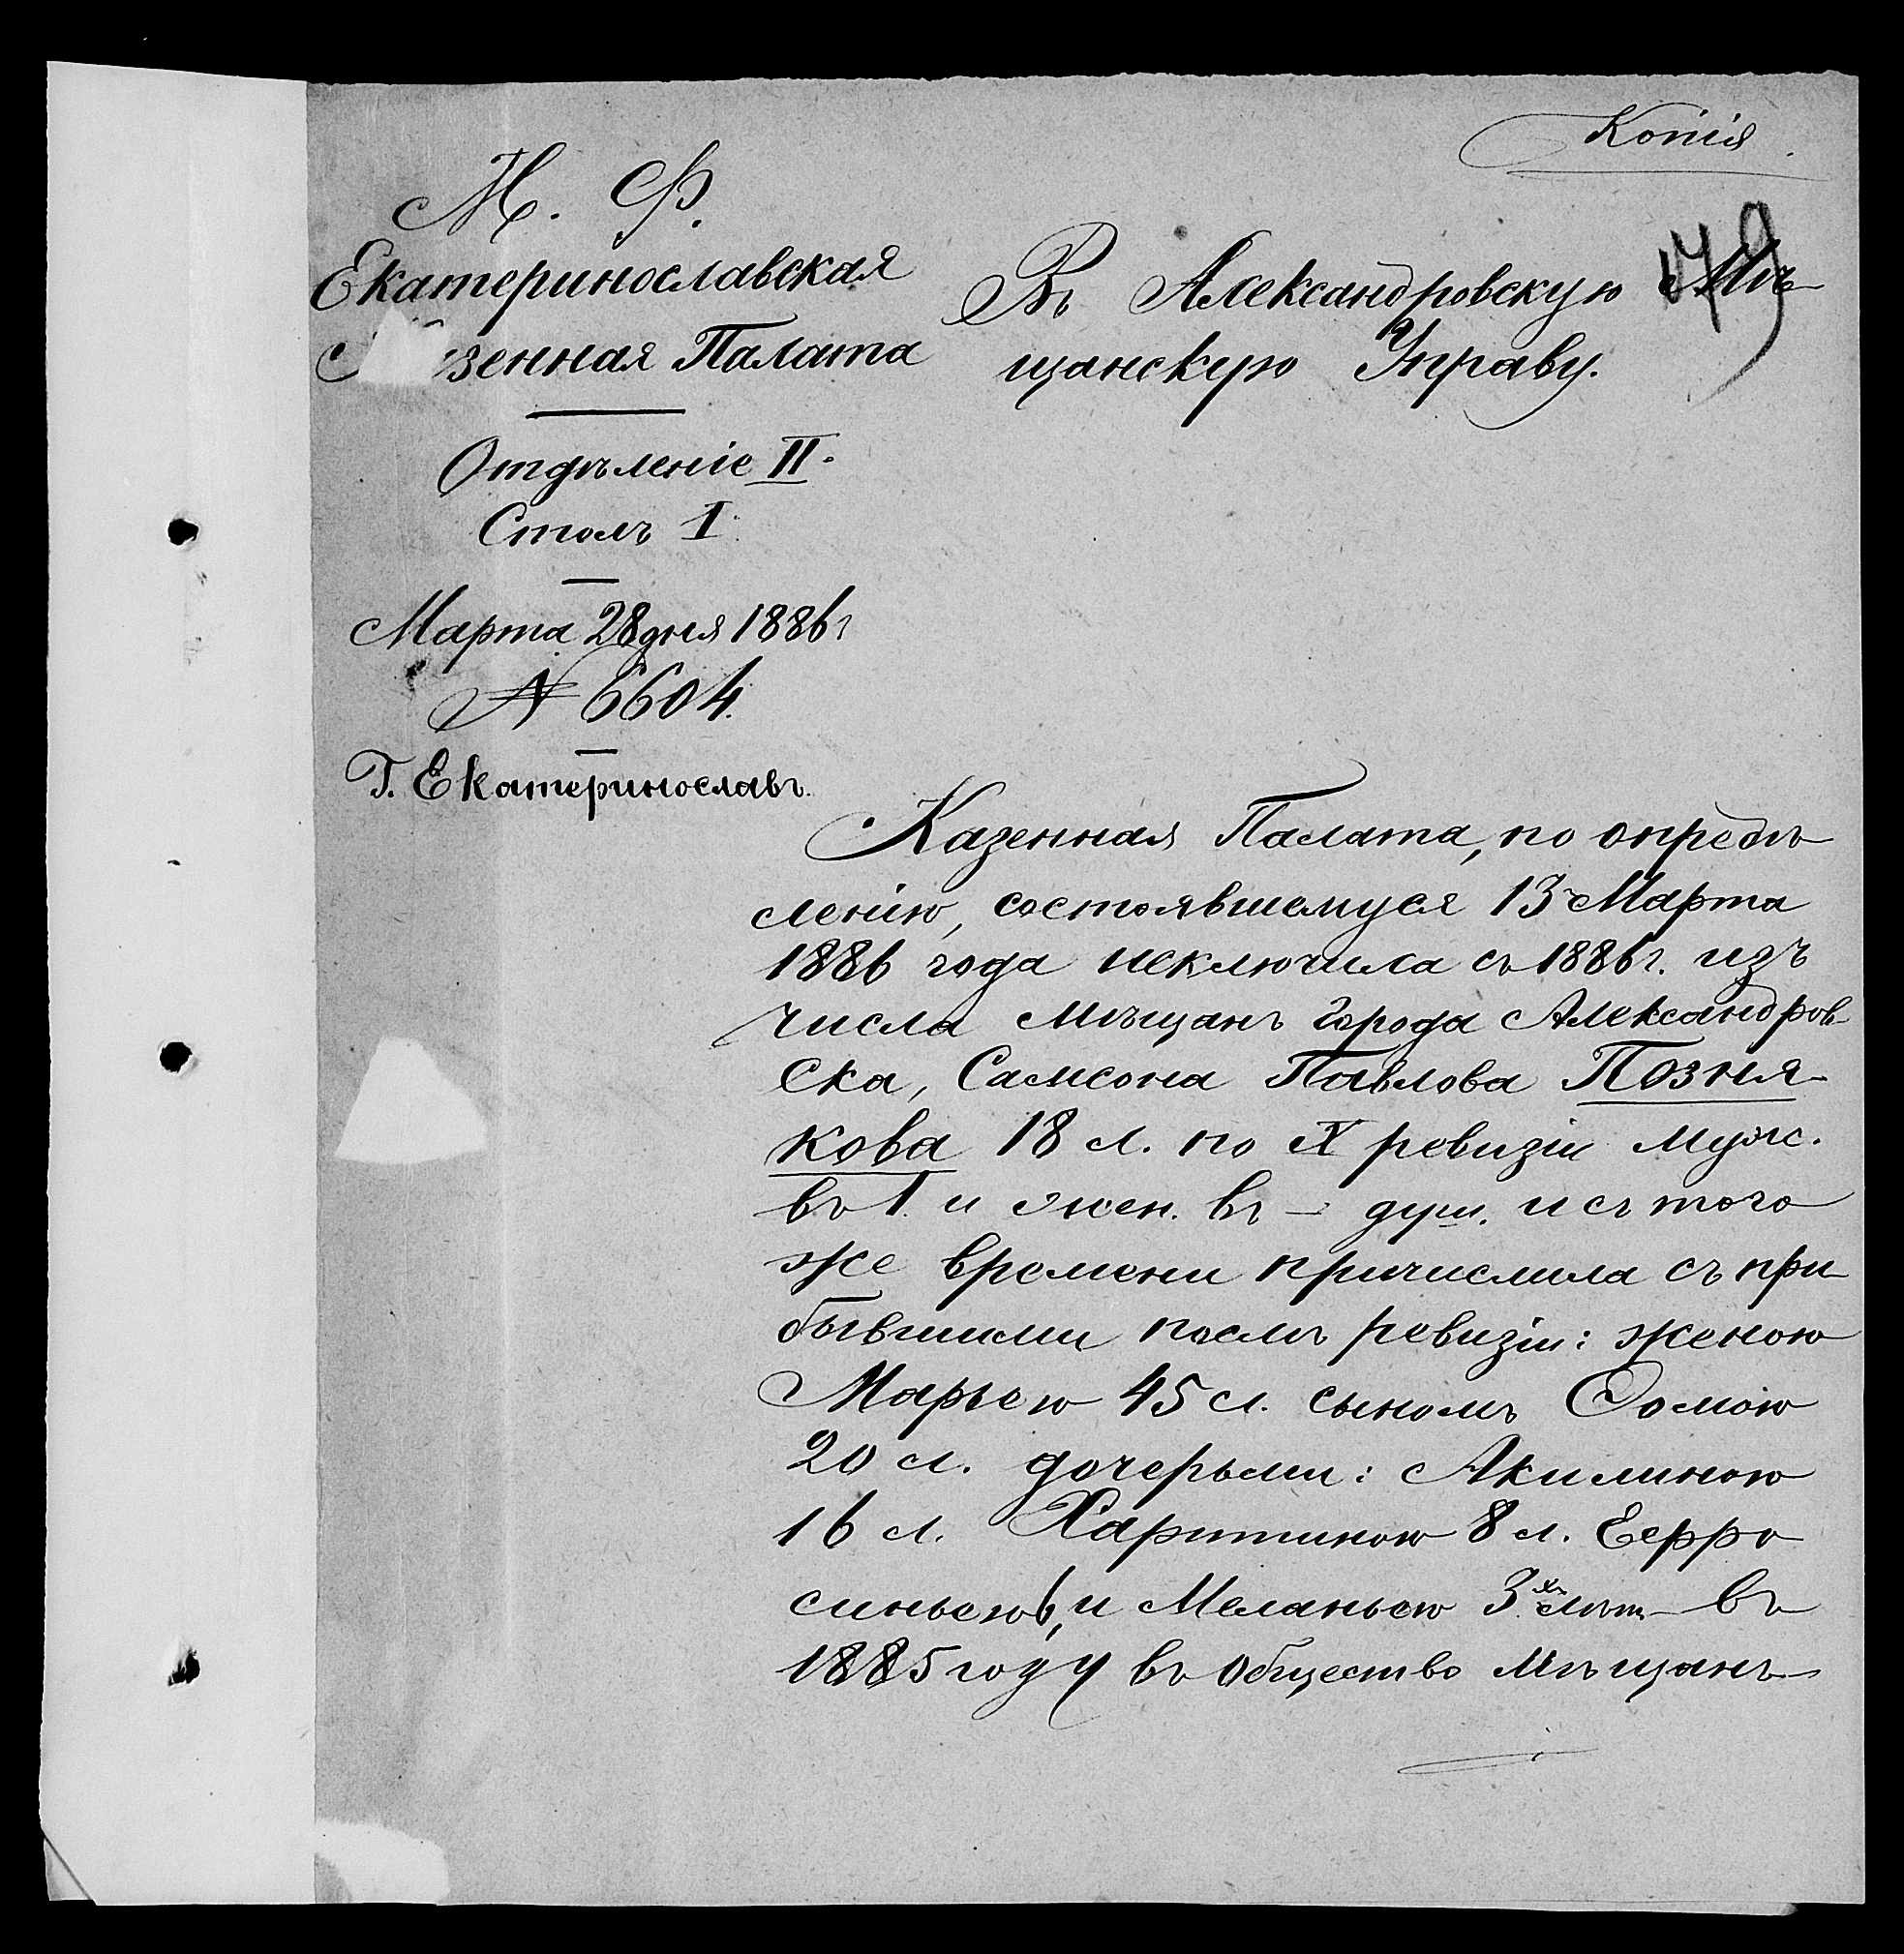 Копія.
179
М. Ф.
Екатеринославская
Казенная Палата
Отдѣленіе II.
Столъ I.
Марта 28 дня 1886 г
№ 6604.
Г. Екатеринославъ.
Въ Александровскую Мѣ-
щанскую Управу.
Казенная Палата, по опредѣ-
ленію, состоявшемуся 13 Марта
1886 года исключила съ 1886 г. изъ
числа мѣщанъ города Александров-
ска, Самсона Павлова Позня-
кова 18 л. по X ревизіи муж.
въ 1. и жен. въ - душ. и съ того
же времени причислила съ при-
бывшими послѣ ревизіи: женою
Марьею 45 л. сыномъ Фомою
20 л. дочерьми: Акилиною
16 л. Харитиною 8 л. Ефро
синьею 6, и Меланьею 3хъ лѣт - въ
1885 году въ общество мѣщанъ